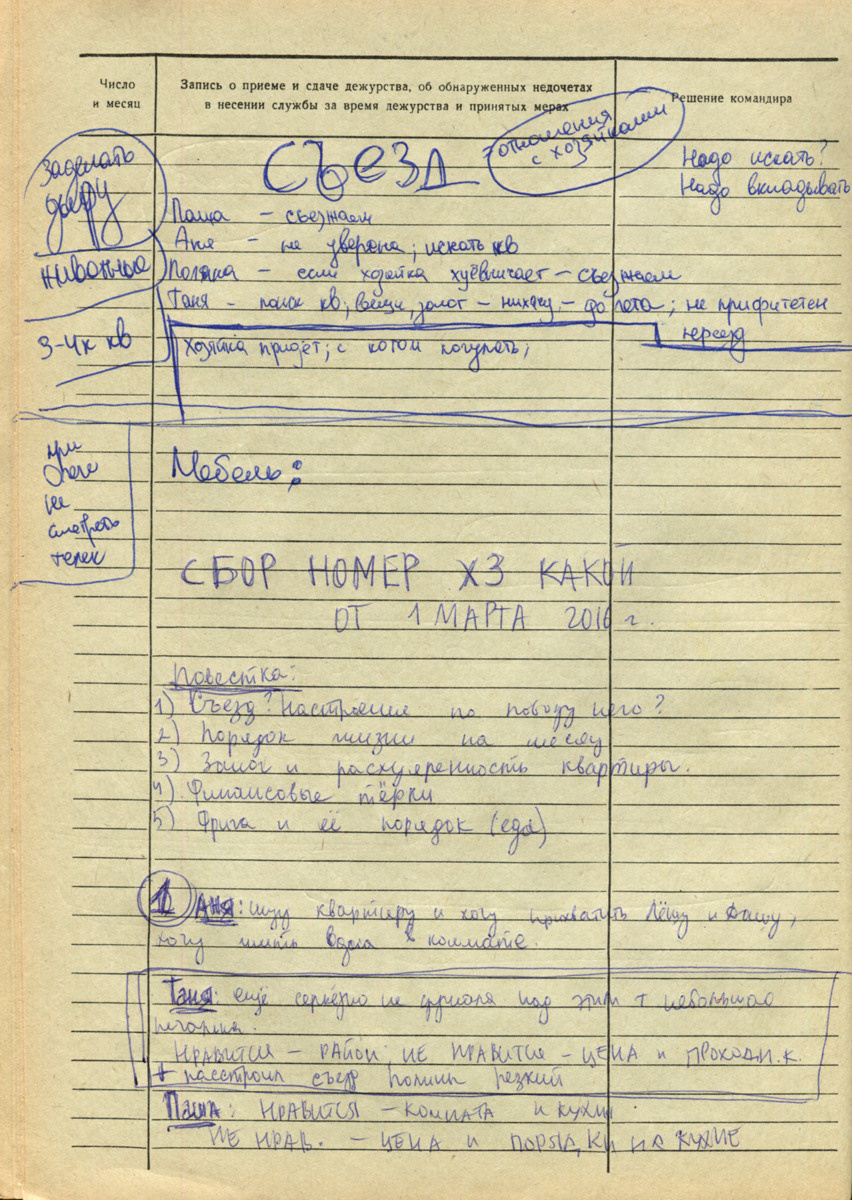 Число
и месяц
Запись о приеме и сдаче дежурства, об обнаруженных недочетах
в несении службы за время дежурства и принятых мерах
Решение командира
Заделать
дыру
животные
3-4к кв
СЪЕЗД
отношения
с хозяйками
Надо искать?
Надо вкладывать
Паша - съезжаем
Аня - не уверена; искать кв
Поляна - если хозяйка хуёвничает - съезжаем
Таня - поиск кв; вещи, залог - - до лета; не
переезд
Хозяйка придет; с котом погулять;
при
не
смотреть
телек
Мебель:
СБОР НОМЕР ХЗ КАКОЙ
ОТ 1 МАРТА 2016 г.
Повестка:
1) Съезд? Настроение по поводу него?
2) Порядок жизни на месяц
3) Залог и расхуяренность квартиры.
4) Финансовые тёрки
5) Фрига и её порядок (еда)
1 Аня: ищу квартиру и хочу прихватить Лёшу и Дашу,
хочу жить одна в комнате.
Таня: ещё серьёзно не думала над этим + небольшая
печалька.
НРАВИТСЯ - РАЙОН; НЕ НРАВИТСЯ - ЦЕНА и ПРОХОДН.К.
+ расстроил съезд Полины резкий
Паша: НРАВИТСЯ - КОМНАТА И КУХНЯ
НЕ НРАВ. - ЦЕНА и ПОРЯДКИ НА КУХНЕ